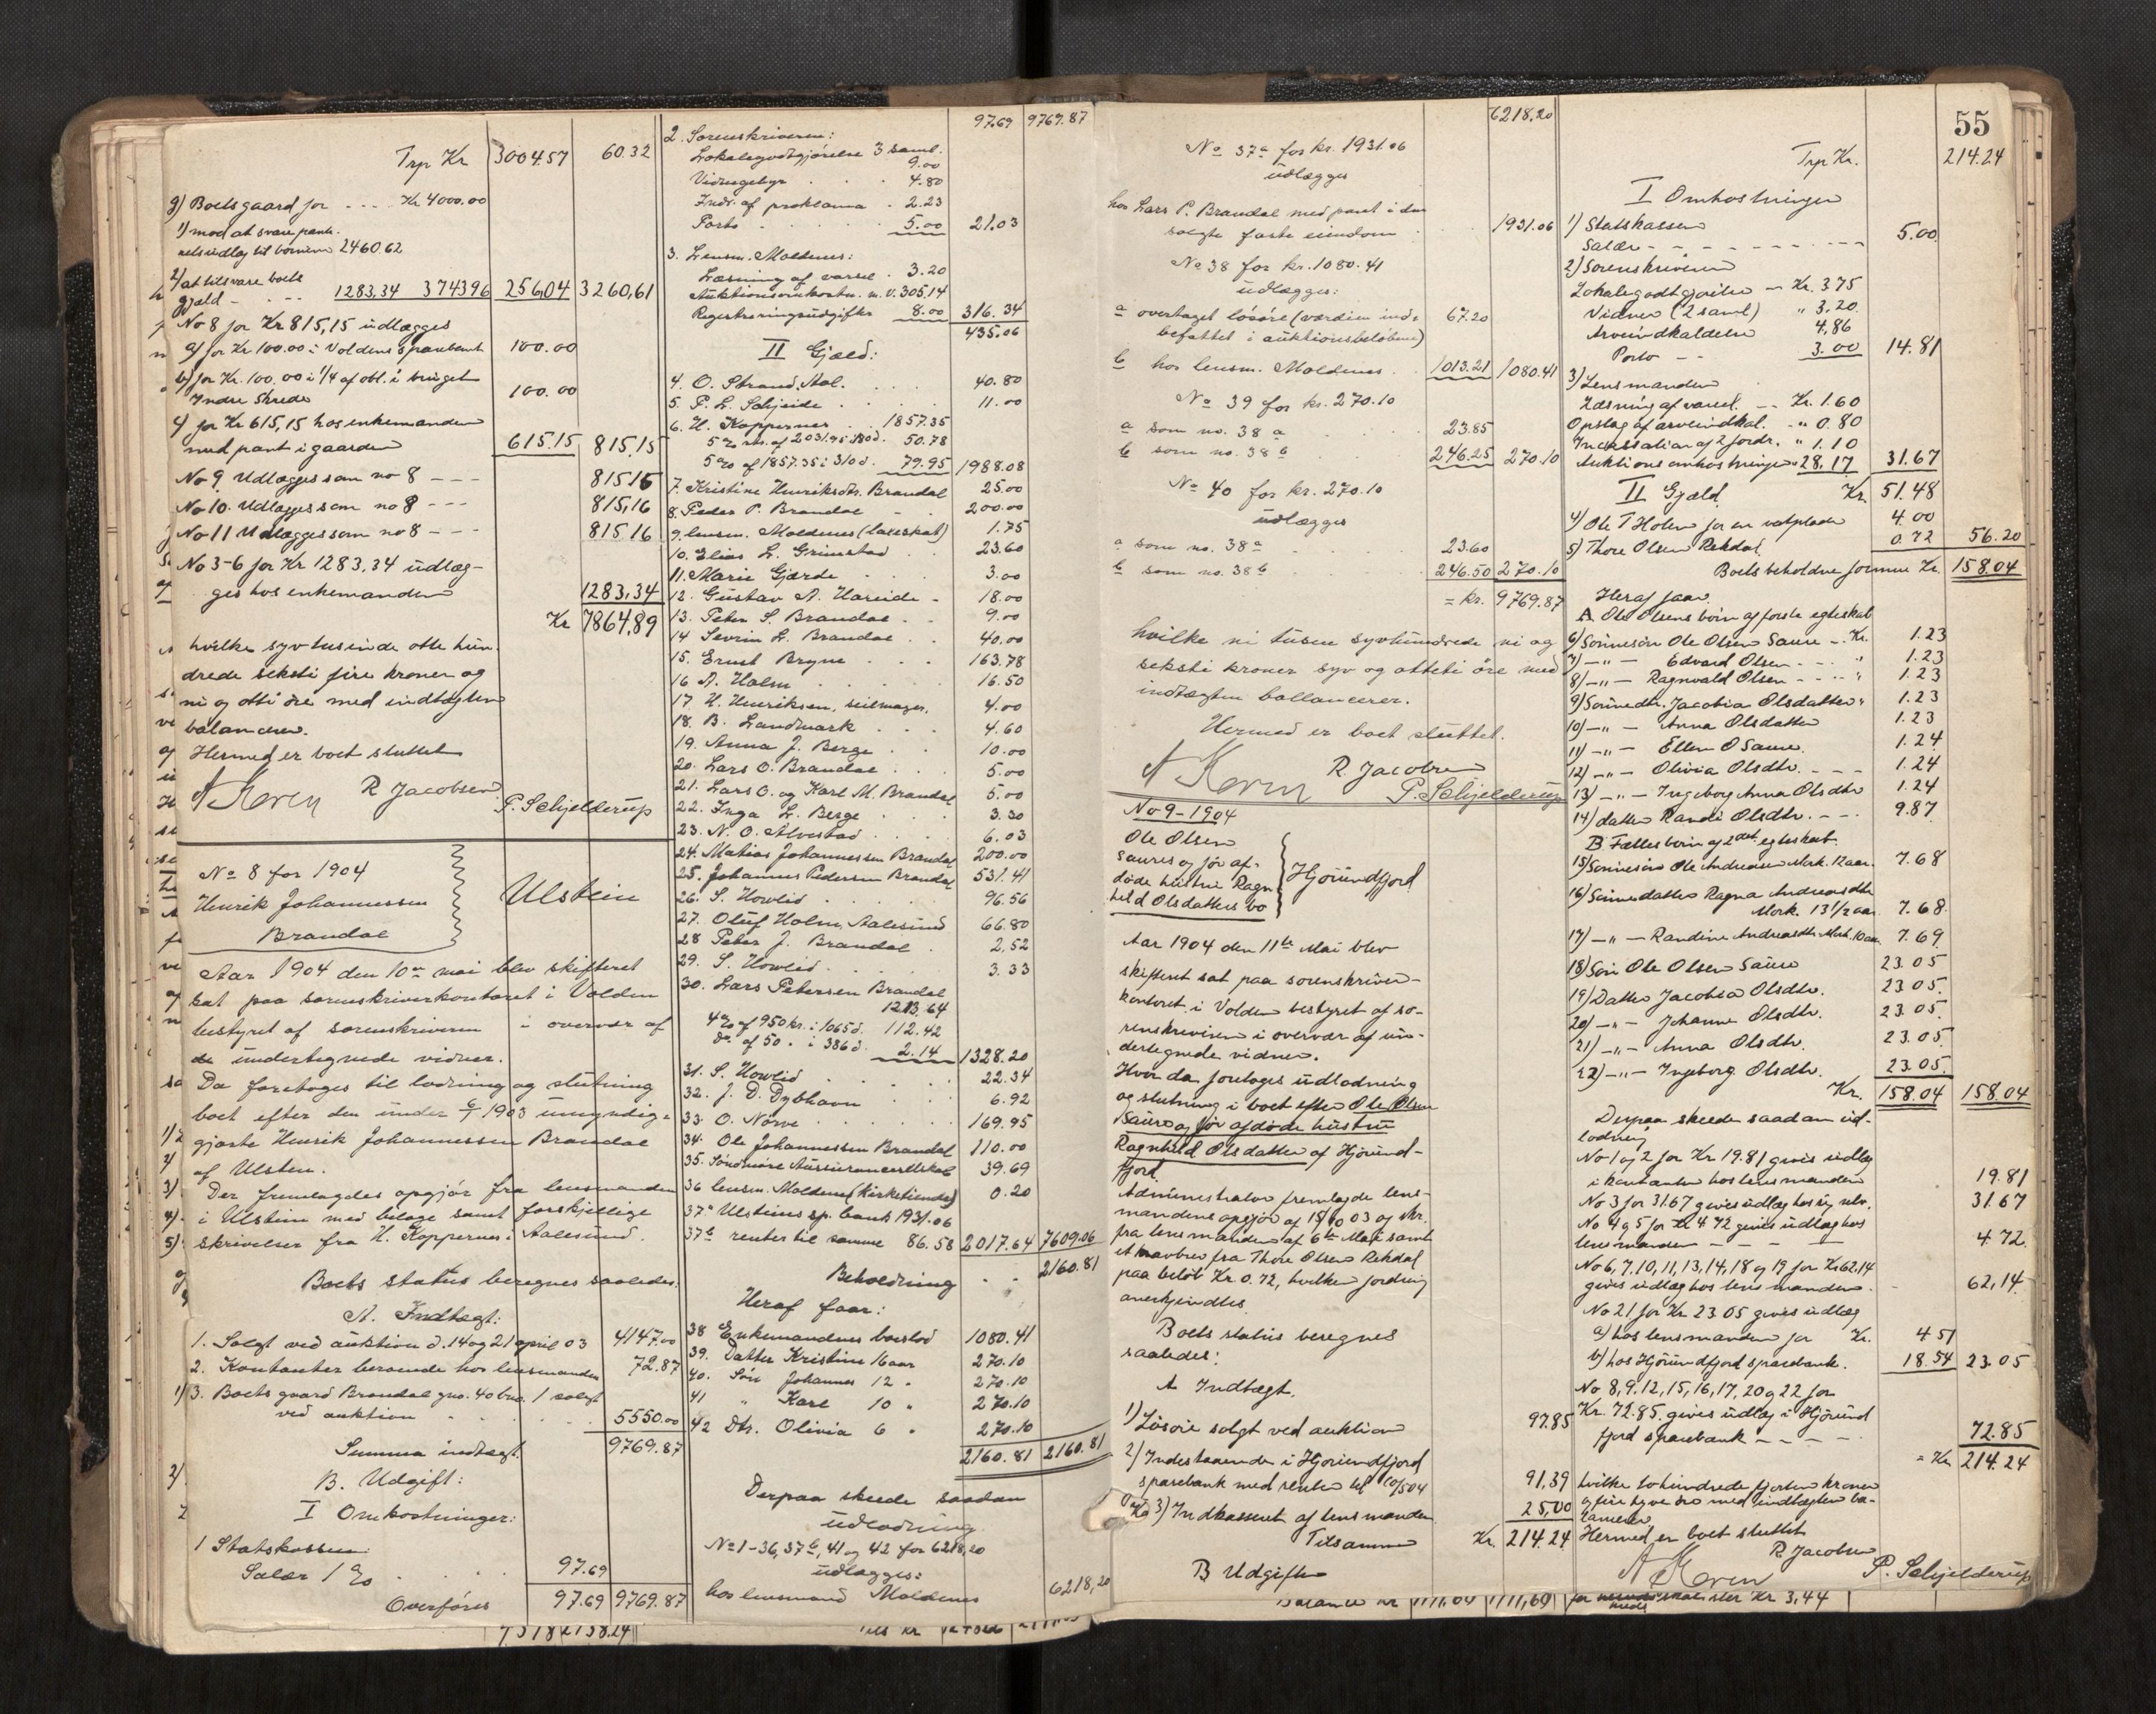 Trp Kr 3004.57 60.32
g) Boets gaard for - - - Kr 4000.00
1) mod at svare pante-
retsudlæg til börnene 2460.62
2) at tilsvare boets
gjæld - - - 1283,34 374396 256,04 3260,61
No 8 for Kr 815,15 udlægges
a) for Kr 100.00 i Voldens sparebank 100.00
b) for Kr. 100,00 i 1/4 af obl. i bruget
Indre Skrede 100.00
c) for Kr 615,15 hos enkemanden
med pant i gaarden 615.15 815,15
No 9 Udlægges som no 8 - - - 815,16
No 10. Udlægges som no 8 - - - 815,16
No 11 Udlægges som no 8 - - - 815.16
No 3-6 for Kr 1283,34 udlæg-
ges hos enkemanden 1283,34
Kr 7864,89
hvilke syv tusinde otte hun-
drede seksti fire kroner og
ni og otti öre med indtægten
balancerer.
Hermed er boet sluttet
R Jacobsen
P. Schjelderup
No 8 for 1904
Henrik Johannessen
Brandal
Ulstein
Aar 1904 den 10de mai blev skifteret
sat paa sorenskriverkontoret i Volden
bestyret af sorenskriveren i overvær af
de undertegnede vidner.
Da foretoges til lodning og slutning
boet efter den under 6/1 1903 umyndig-
gjorte Henrik Johannessen Brandal
af Ulsten.
Der fremlagdes opgjör fra lensmanden
i Ulstein med belage samt forskjellige
skrivelser fra H. Koppernes i Aalesund.
Boets status beregnes saaledes:
A. Indtægt:
1. Solgt ved auktion d. 14 og 21 april 03 4147.00
2. Kontanter beroende hos lensmanden 72.87
3. Boets gaard Brandal gno. 40 bno. 1 solgt
ved auktion 5550.00
Summa indtægt 9769.87
B. Udgift:
I Omkostninger:
1 Statskassen:
Salær 1 % 97.69
Overføres 97.69 9769.87
97.69 9769.87
2. Sorenskriveren:
Lokalegodtgjörelse 3 saml. 9.00
Vidnegebyr 4.80
Indr. af proklama 2.23
Porto 5.00 21.03
3. Lensm. Moldenes:
Læsning af varsel 3.20
Auktionsomkostn. m. v. 305.14
Registreringsudgifter 8.00 316.34
435.06
II Gjæld:
4. O. Strand, Aal. 40.80
5. P. L. Schjeide 11.00
6. H. Koppernes 1857.35
5 % rn. af 2031.95 180 d. 50.78
5 % af 1857.35 i 310 d. 79.95 1988.08
7. Kristine Henriksdtr. Brandal 25.00
8. Peder P. Brandal 200.00
9. lensm. Moldenes (laxeskat) 1.75
10. Elias L. Grimstad 23.60
11. Marie Gjærde 3.00
12. Gustav A. Hareide 18.00
13. Peter S. Brandal 9.00
14 Severin L. Brandal 40.00
15. Ernst Bryne 163.78
16 A. Holm 16.50
17 H. Henriksen, seilmager. 4.00
18. B. Landmark 4.60
19. Anna J. Berge 10.00
20. Lars O. Brandal 5.00
21. Lars O. og Karl M. Brandal 5.00
22. Inga L. Berge 3.30
23. N. O. Alvestad 6.03
24. Matias Johannessen Brandal 200.00
25. Johannes Pedersen Brandal 531.41
26. S. Hovlid 96.56
27. Oluf Holm, Aalesund 66.80
28 Peter J. Brandal 2,52
29. S. Hovlid 3.33
30. Lars Petersen Brandal
1213.64
4 % af 950 kr. i 1065 d. 112.42
do. af 50 . i 386 d. 2.14 1328.20
31. S. Hovlid 22.34
32. J. D. Dybhavn 6.92
33. O. Nörve 169.95
34. Ole Johannessen Brandal 110.00
35. Söndmöre Assuranceselskab 39.69
36 lensm. Moldenes (Kirketiende) 0.20
37a Ulsteins sp. bank 1931.06
37b renter til samme 86.58 2017.64 7609.06
Beholdning 2160.81
Heraf faar:
38 Enkemandens boeslod 1080.41
39. Datter Kristine 16 aar 270.10
40. Sön Johannes 12 " 270.10
41 " Karl 10 " 270.10
42 Dtr. Olivia 6 " 270.10
2160.81 2160.81
Derpaa skeede saadan
udlodning
No 1-36, 37b, 41 og 42 for 6218,20
udlægges:
hos lensmand Moldenes 6218,20
6218,20
No 37a for kr. 1931.06
udlægges
hos Lars P. Brandal med pant i den
solgte faste eiendom 1931.06
No 38 for kr. 1080.41
udlægges:
a overtaget lösöre (værdien ind-
befattet i auktionsbelöbene) 67.20
b hos lensm. Moldenes 1013.21 1080.41
No 39 for kr. 270.10
a som no. 38 a 23.85
b som no. 38 b 246.25 270.10
No 40 for kr. 270.10
udlægges
a som no. 38a 23.60
b som no. 38b 246.50 270.10
= kr. 9769.87
hvilke ni tusen syvhundrede ni og
seksti kroner syv og otteti öre med
indtægten ballancerer.
Hermed er boet sluttet.
R. Jacobsen
P. Schjelderup
No 9 - 1904
Ole Olsen
Saures og för af-
döde hustru Ragn
hild Olsdatters bo
Hjörundfjord
Aar 1904 den 11te Mai blev
skifteret sat paa sorenskriver-
kontoret i Volden bestyret af so-
renskriveren i overvær af un-
dertegnede vidner.
Hvor da foretoges udlodning
og slutning i boet efter Ole Olsen
Saure og för afdöde hustru
Ragnhild Olsdatter af Hjörund-
fjord.
Administrator fremlagde lens-
mandens opgjör af 15/10 03 og skr.
fra lensmanden af 6te Mai samt
et kravbrev fra Thore Olsen Rekdal
paa belöb Kr 0.72, hvilken fordring
anerkjendtes.
Boets status beregnes
saaledes:
A Indtægt.
1) Lösöre solgt ved auktion 97.85
2) Indestaaende i Hjörundfjord
sparebank med renter til 10/5 04 91,39
3) Indkasseret af lensmanden 25,00
Tilsammen Kr. 214.24
B Udgifter
55
Trp Kr. 214.24
I Omkostninger
1) Statskassen
Salær - - - - - - - 5.00
2) Sorenskriveren
Lokalegodtgjörelse - Kr. 3.75
Vidner (2 saml) " 3.20
Arveindkaldelse 4.86
Porto - - 3.00 14.81
3) Lensmanden
Læsning af varsel. - Kr. 1.60
Opslag af arveindkal. - " 0.80
Incassation af 2 fordr. " 1.10
Auktions omkostninger " 28.17 31.67
II Gjæld Kr. 51.48
4) Ole T Holen for en votplade 4.00
5) Thore Olsen Rekdal 0.72 56.20
Boets beholdne formue Kr. 158.04
Heraf faar
A Ole Olsens börn af förste egteskab
6) Sönnesön Ole Olsen Saure - Kr. 1.23
7) -"- Edvard Olsen - - - " 1.23
8) -"- Ragnvald Olsen - - - " 1.23
9) Sönnedtr. Jacobia Olsdatter " 1.23
10) -"- Anna Olsdatter 1.23
11) -"- Ellen O Saure 1.24
12) -"- Olivia Olsdtr. - - - 1.24
13) -"- Ingeborg Anna Olsdtr 1.24
14) datter Randi Olsdtr. - - - 9.87
B Fælles börn af 2det egteskab
15) Sönnesön Ole Andreasen Mork. 12 aar. 7.68
16) Sönnedatter Ragna Andreasdtr
Mork. 13 1/2 aar 7.68
17) -"- Randine Andreasdtr Mork. 10 aar 7.69
18) Sön Ole Olsen Saure 23.05
19) Datter Jacobia Olsdtr. 23.05
20) -"- Johanne Olsdtr. 23.05
21) -"- Anna Olsdtr. 23.05
22) -"- Ingeborg Olsdtr. 23.05
Kr. 158.04 158.04
Derpaa skeede saadan ud-
lodning
No 1 og 2 for Kr 19.81 gives udlæg
i kontanter hos lensmanden 19.81
No 3 for 31.67 gives udlæg hos sig selv. 31.67
No 4 og 5 for Kr 4 72 gives udlæg hos
lensmanden - - - 4.72
No 6, 7. 10, 11, 13, 14, 18 og 19 for Kr 62.14
gives udlæg hos lensmanden - 62,14
No 21 for Kr 23.05 gives udlæg
a) hos lensmanden for Kr. 4 51
b) hos Hjörundfjord sparebank. 18.54 23.05
No 8, 9. 12, 15, 16, 17, 20 og 22 for
Kr. 72.85. gives udlæg i Hjörund
fjord sparebank - - - - 72.85
= Kr 214.24
hvilke tohundrede fjorten kroner
og fire tyve öre med indtægten ba-
lancerer
Hermed er boet sluttet
R Jacobsen
P. Schjelderup